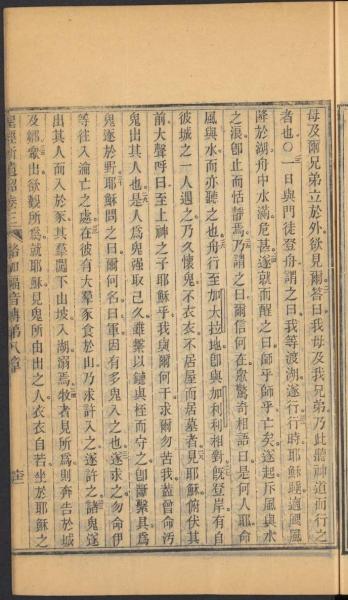 母及爾兄弟立於外欲見爾答曰我母及我兄弟乃此聽神道而行之
者也○一日與門徒登舟謂之曰我等渡湖遂行行時耶穌睡適颶風
降於湖舟中水滿危甚遂就而醒之曰師乎師乎亡矣遂起斥風與水
之浪卽止而恬靜焉乃謂之曰爾信何在衆驚奇相語曰是何人耶命
風與水而亦聽之也舟行至加大拉地卽與加利利相對旣登岸有自
彼城之一人遇之乃久懷鬼不衣衣不居屋而居墓者見耶穌俯伏其
前大聲呼曰至上神之子耶穌乎我與爾何干求爾勿苦我蓋曾命汚
鬼出其人也是人爲鬼强取已久雖繫以鏈與桎而守之卽斷繫具爲
鬼逐於野耶穌問之曰爾何名曰軍因有多鬼入之也遂求之勿命伊
等往入淪亡之處在彼有大羣豕食於山乃求許入之遂許之諸鬼遂
出其人而入於豕其羣闖下山坡入湖溺焉牧者見所爲則奔告於城
及鄕衆出欲觀所爲就耶穌見鬼所由出之人衣衣自若坐於耶穌之
聖經新遺詔卷三 路加福音傳第八章